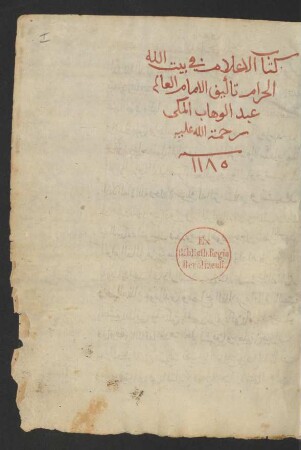 I
كتاب الاعلام في بيت الله
الحرام تاليف الامام العالم
عبد الوهاب المكي
رحمة الله عليه
١١٨٥
Ex
Biblioth. Regia
Berolinensi.